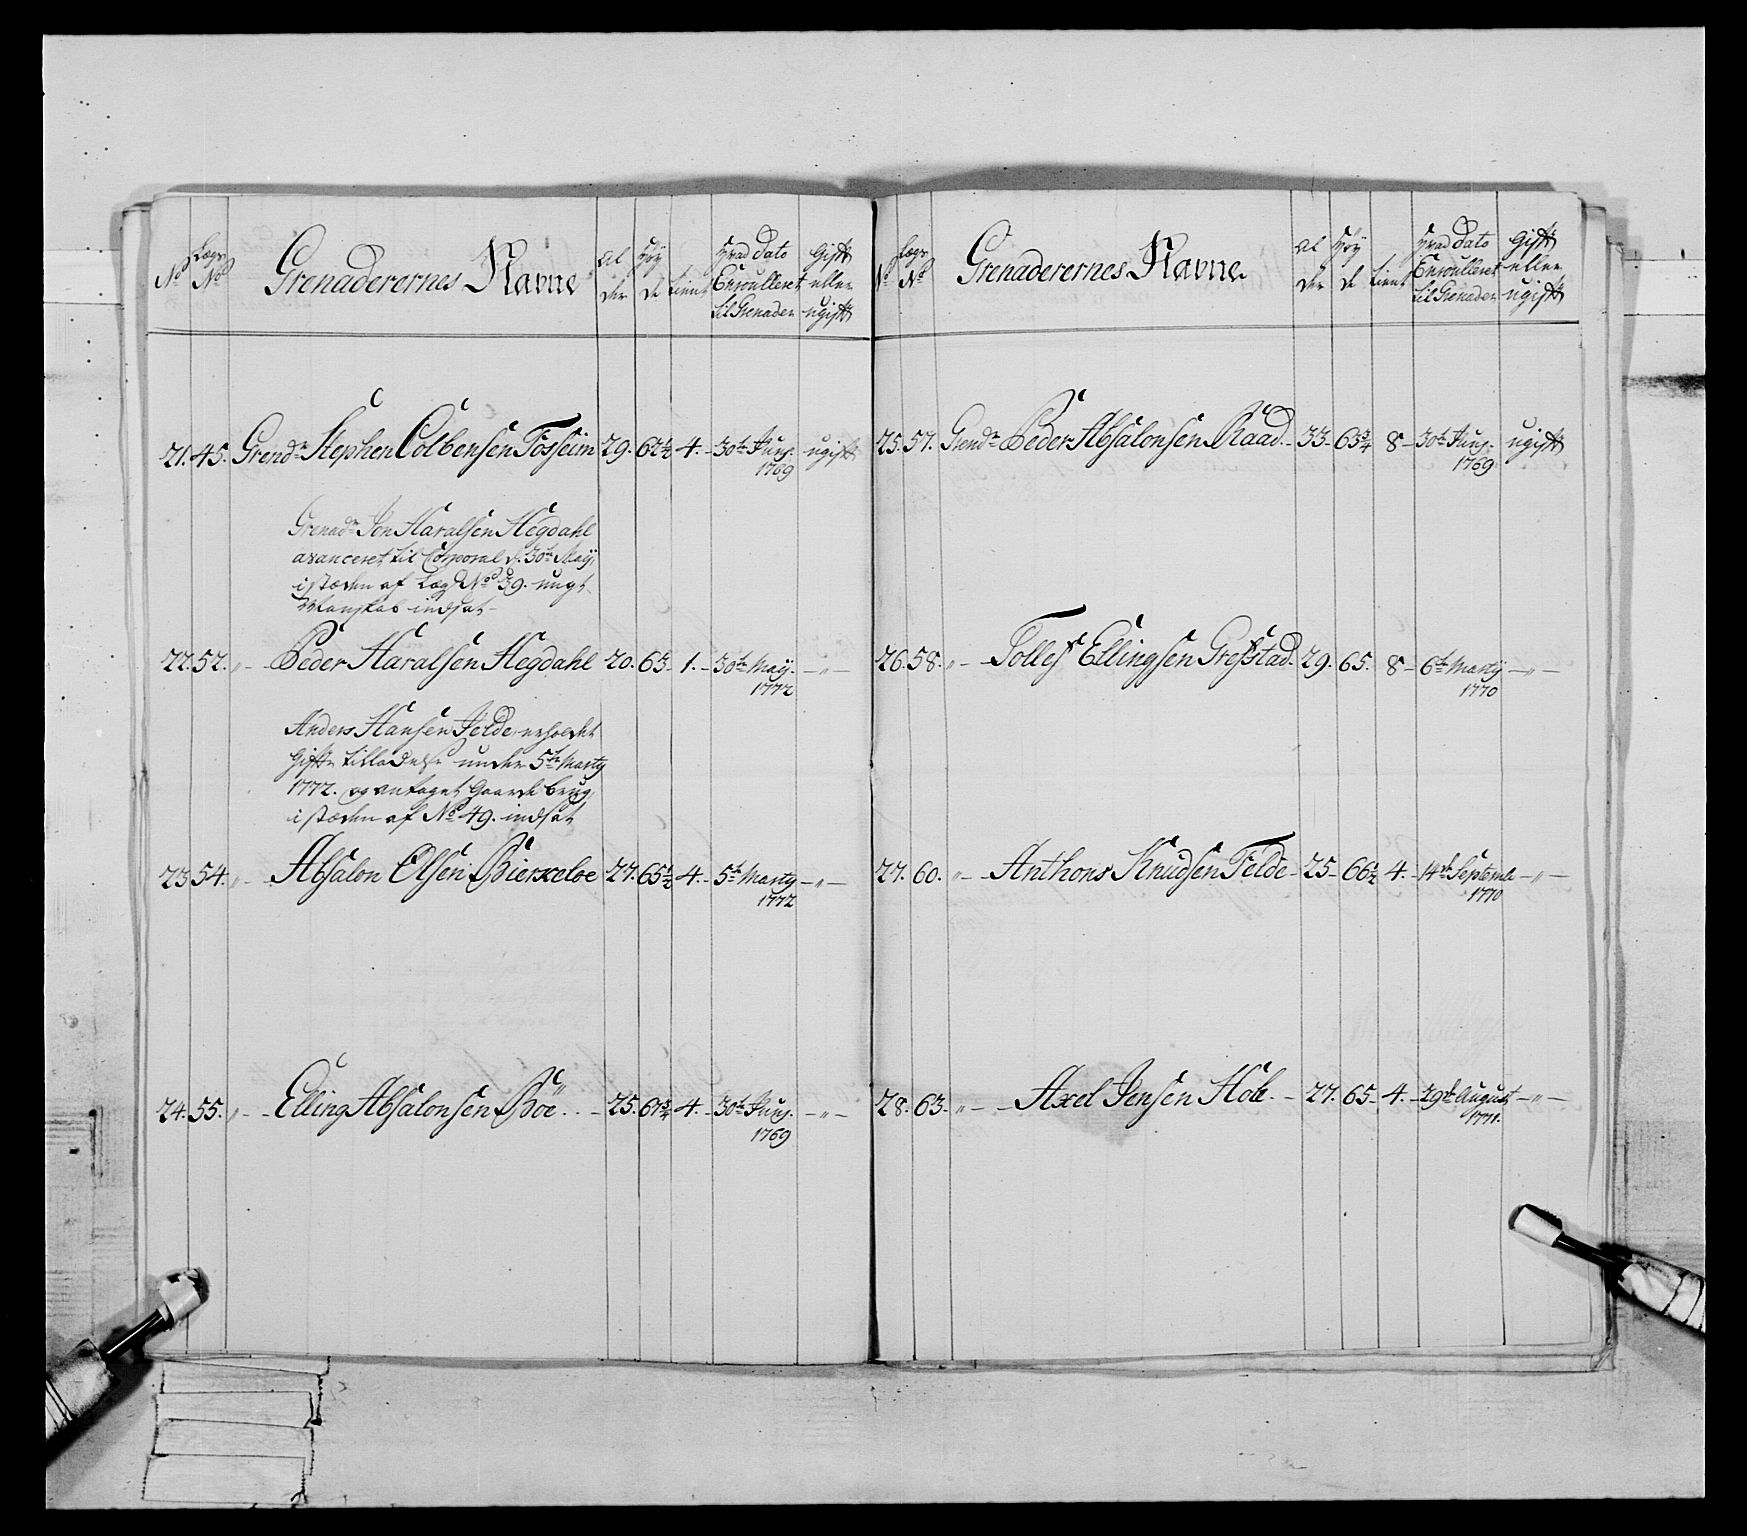 No Lægs No Grenaderernes Navne Al der Høy de tient hvad Dato Enroulleret til Grenader Gift eller ugift
21. 45. Grendr Stephen Colbensen Fosseim 29. 62½ 4. 30te Juny 1769 ugift
Grenadr Jon Haralsen Hegdahl
avanceret til Corporal d. 30te Maÿ
i stæden af Læg No 39. ungt
Mandskab indsat
22. 52. " Peder Haralsen Hegdahl 20. 63. 1. 30te Maÿ 1772 "
Anders Hansen Felde erholdet
Gifte tilladelse under 5te Marty
1772. og antaget Gaarde brug
i stæden af No 49. indsat
23. 54. " Absalon Olsen Bierxeloe 27. 65½ 4. 5te Marty 1772 "
24. 55. " Elling Absalonsen Böe 25. 67¾ 4. 30te Juny 1769 "
No Lægs No Grenaderernes Navne Al der Høy de tient hvad Dato Enroulleret til Grenader Gift eller ugift
25. 57. Grendr Peder Absalonsen Raad 33. 63¾ 8 30te Juny 1769 ugift
26. 58. " Tollef Ellingsen Grefstad 29. 65. 8 6te Marty 1770 "
27. 60. " Anthons Knudsen Felde 25 66½ 4. 14de Septemb 1770 "
28. 63. " Axel Jensen Hole 27. 65 4. 29de August 1771. "